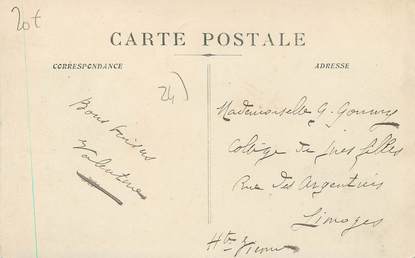 20t
CARTE POSTALE
CORRESPONDANCE
ADRESSE
24)
Bons baisers
Valentine
Mademoiselle G.
Collège de Jnes filles
Rue des Argentiers
Limoges
Hte Vienne